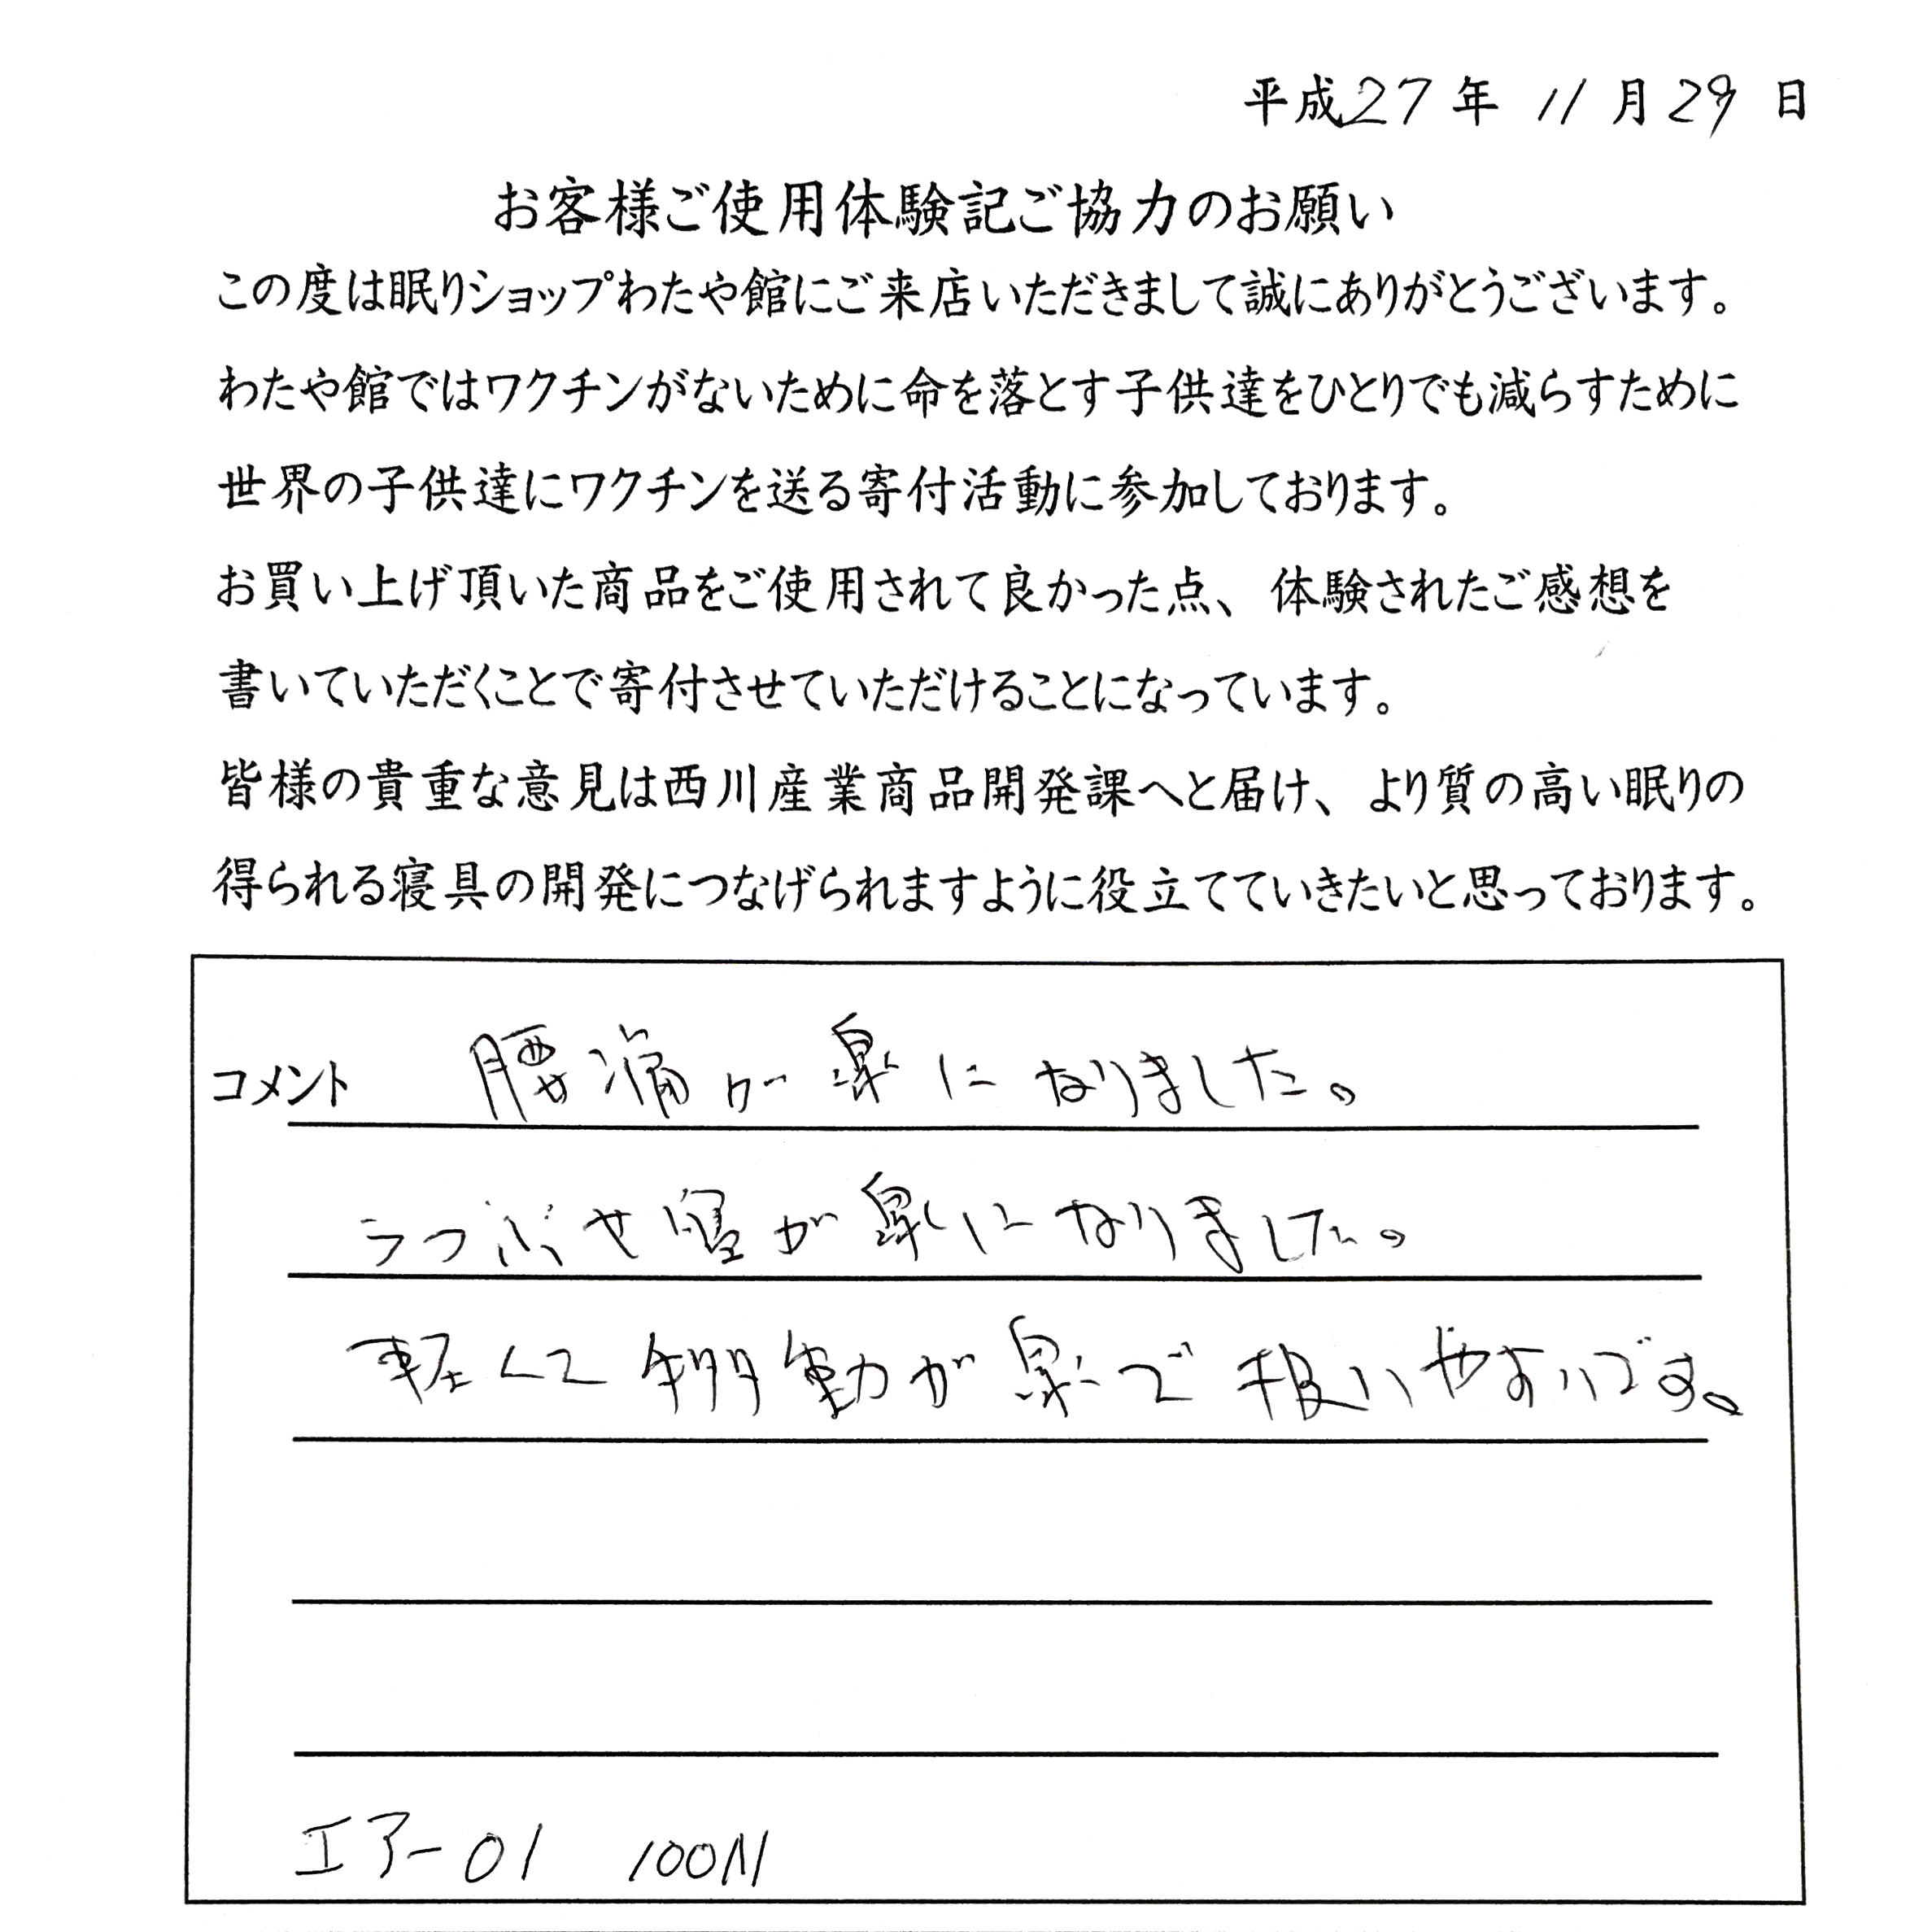 平成27年 11月29日
お客様ご使用体験記ご協力のお願い
この度は眠りショップわたや館にご来店いただきまして誠にありがとうございます。
わたや館ではワクチンがないために命を落とす子供達をひとりでも減らすために
世界の子供達にワクチンを送る寄付活動に参加しております。
お買い上げ頂いた商品をご使用されて良かった点、体験されたご感想を
書いていただくことで寄付させていただけることになっています。
皆様の貴重な意見は西川産業商品開発課へと届け、より質の高い眠りの
得られる寝具の開発につなげられますように役立てていきたいと思っております。
コメント 腰痛が楽になりました。
うつぶせ寝が楽になりました。
軽くて移動が楽で扱いやすいです。
エアー01 100N